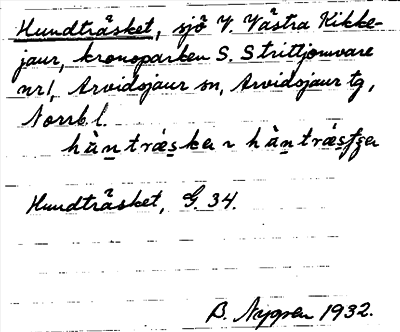 Hundträsket, sjö V. Västra Kikke-
jaur, kronoparken S. Strittjomvare
nr 1, Arvidsjaur sn, Arvidsjaur tg,
Norrb. l.
hùntrǽskɐ ~
Hundträsket, G. 34.
B. Nygren 1932.